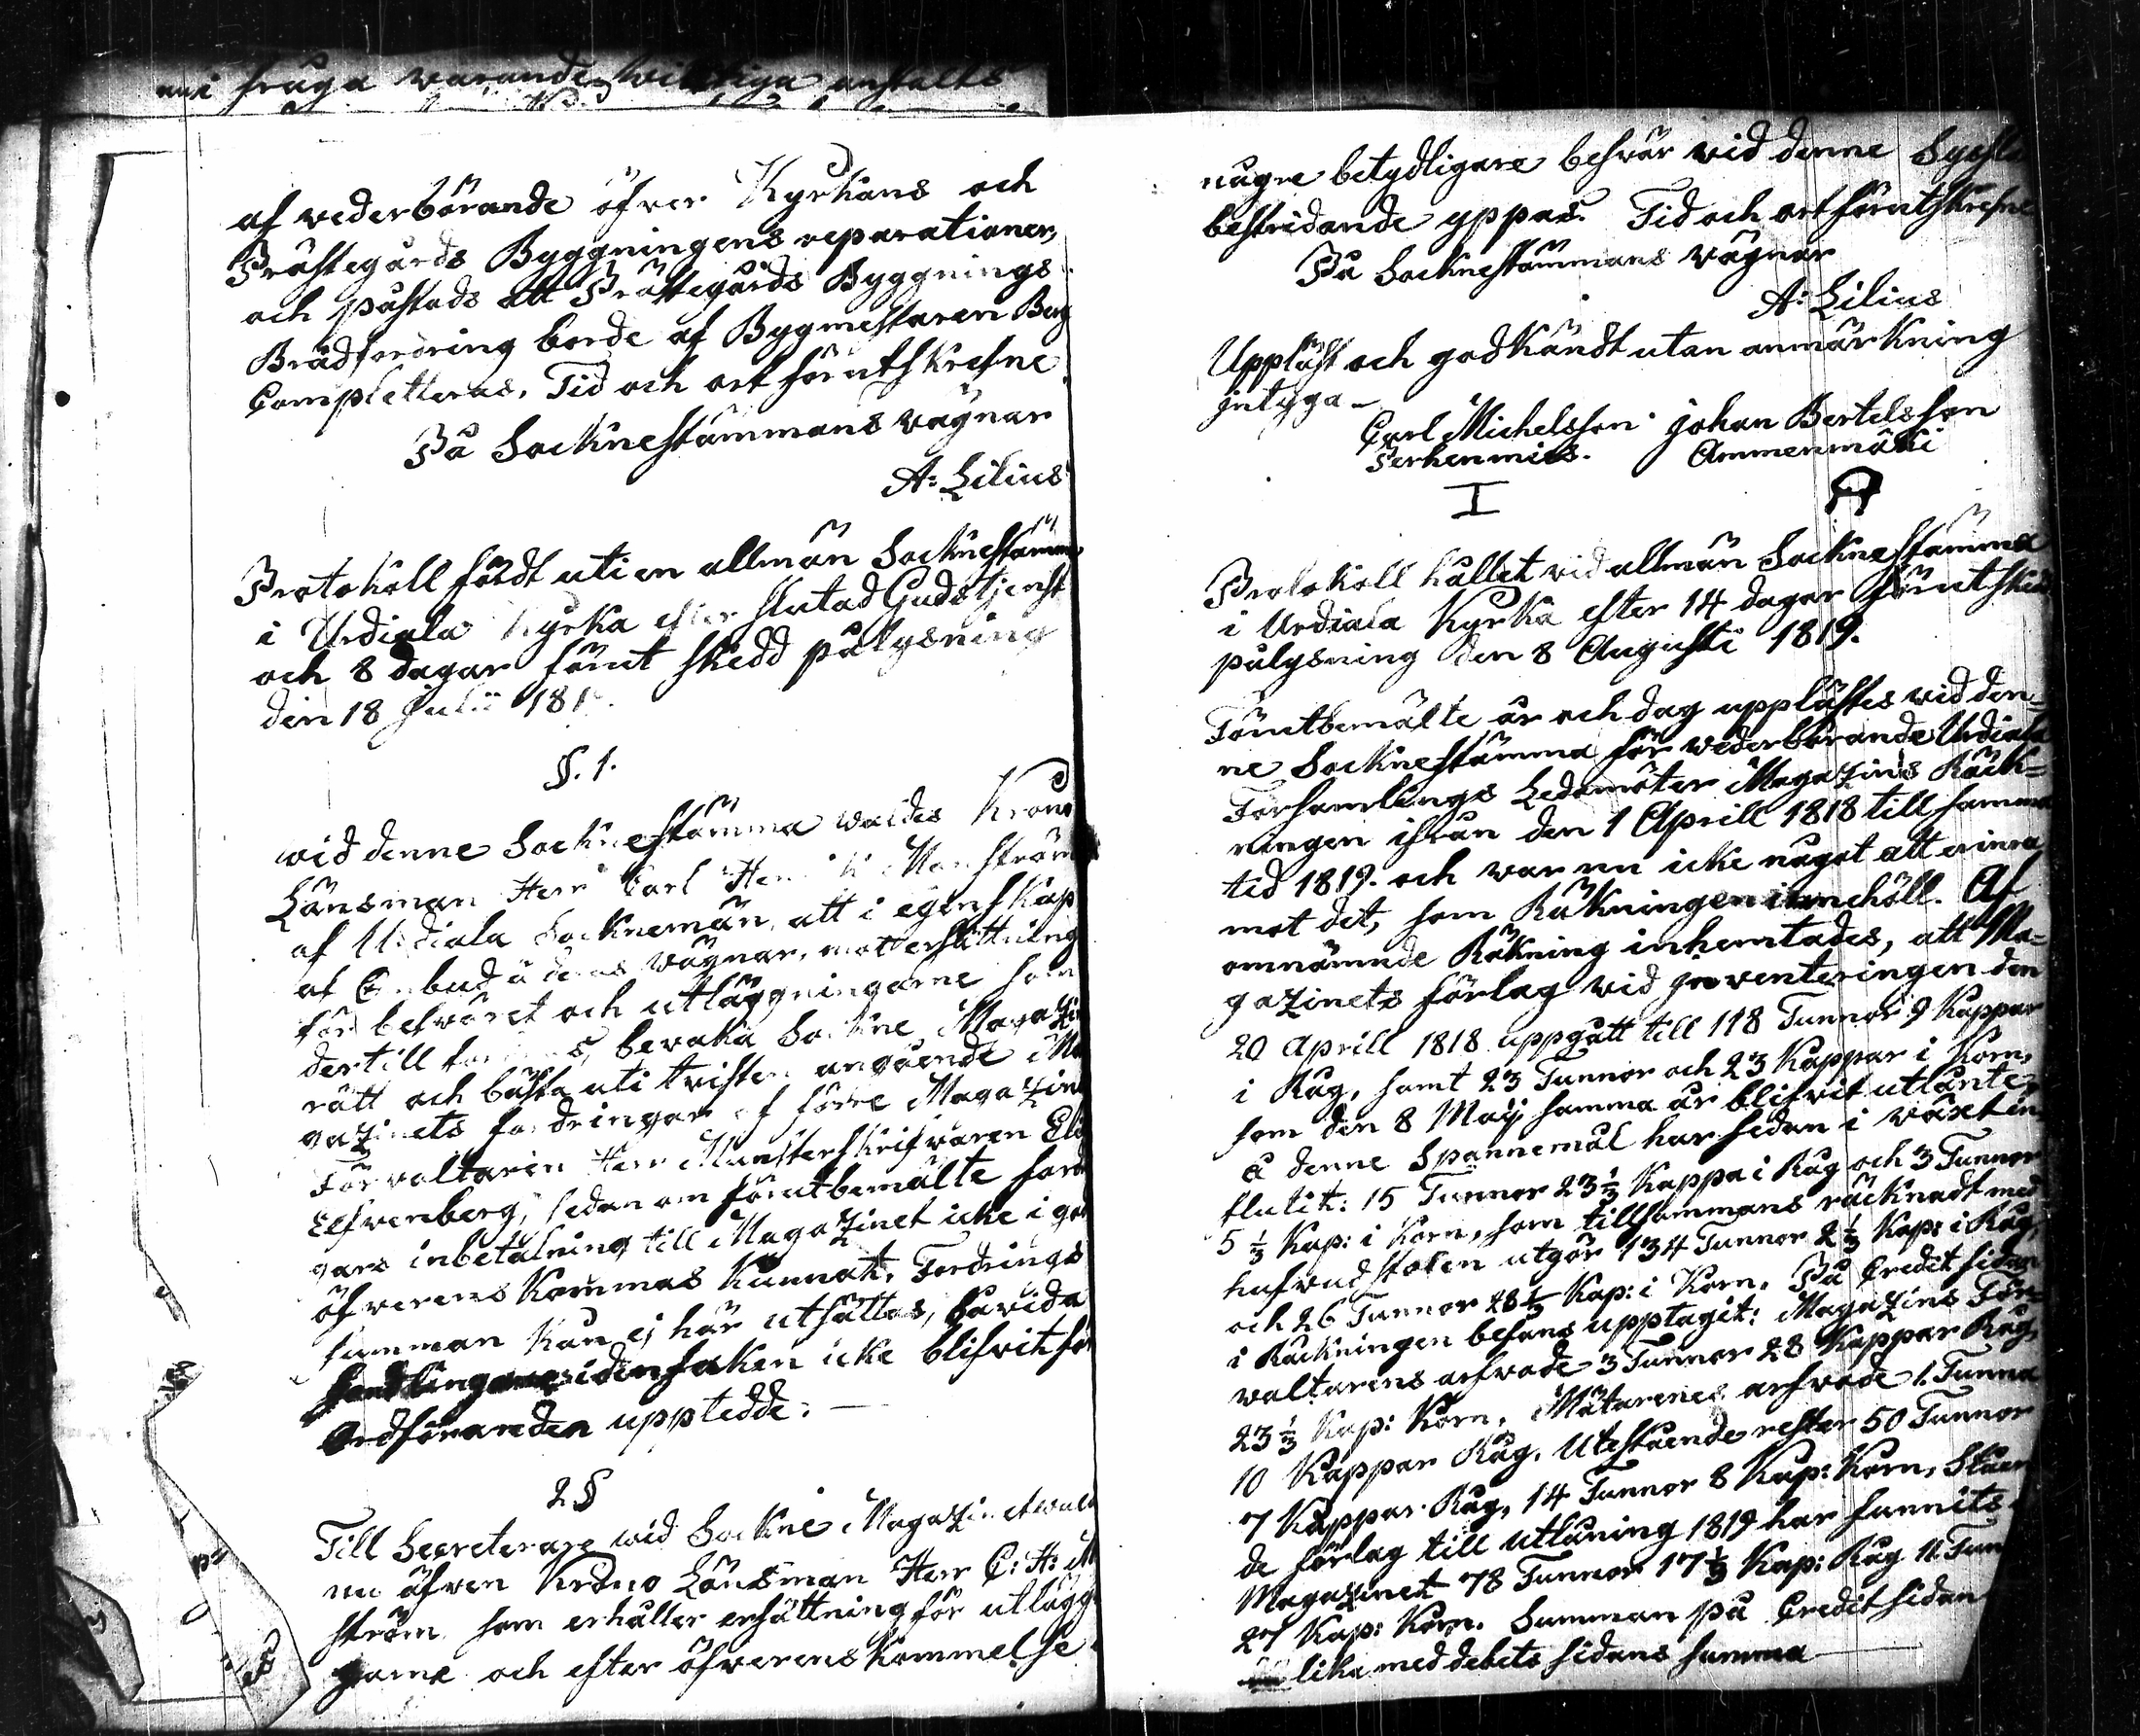 fråga warande wigtiga anstalts
af vederbörande öfver Kyrkans och
Prästegårds Byggningens reparationer,
och påstods att Prästegårds Byggnings
Brädfordring borde af Bygmestaren Berg
Completteras. Tid och ort förutskrefne
På Socknestämmans vägnar
A: Lilius
Protokoll fördt uti en allmän Socknestämma
i Urdiala Kyrka efter slutad Gudstjenst
och 8 dagar förut skedd pålysning
den 18 Julii 181
§. 1.
wid denne Socknestämma valdes Krono
Länsman Herr Carl Henrik Monström
af Urdiala Socknemän, att i egenskap
af Ombud å deras vägnar, mot ersättning
för besväret och utläggningarne som
dertill fordras, bevaka Sockne Magazin
rätt och bästa uti tvisten angående Ma
gazinets fordringar af förre Magazins
Förvaltaren Herr Munsterskrifvaren
Elfvenberg, sedan om förutbemälte fordr
gars inbetalning till Magazinet icke i god
öfverens Kommas Kunnat. Fordrings
summan Kan ej här utsättas, såvida
handlingarne i den saken icke blifvit för
Ordföranden uppledde. —
2 §
Till Secreterare wid Sockne Magazinet vald
nu äfven Krono Länsman Herr C: H: M
ström som erhåller ersättning för utlägg
garne och efter öfverens Kommelse
någre betydligare besvär vid denne Syssla
bestridande yppas. Tid och ort förutskrefne
På Socknestämmans vägnar
A: Lilius
Uppläst och godkändt utan anmärkning
intyga —
Carl Michelsson Johan Bertelsson
Perhenmies. Ammenmäki
I
Protokoll hållet vid allmän Socknestämma
i Urdiala Kyrka efter 14 dagar förut skedd
pålysning den 8 Augusti 1819.
Förutbemälte år och dag upplästes vid den=
ne Socknestämma för vederbörande Urdiala
Församlings Ledamöter Magazins Räck=
ningen ifrån den 1 Aprill 1818 till samma
tid 1819. och war nu icke något att erinra
mot det, som Räkningen innehöll. Af
omnämnde Räkning inhemtades, att Ma=
gazinets förlag vid inventeringen den
20 Aprill 1818 uppgått till 118 Tunnor 9 Kappar
i Råg, samt 23 Tunnor och 23 Kappar i Korn,
som den 8 Maij samma år blifvit utlånte,
å denne Spannemål har sedan i växt in
flutit: 15 Tunnor 23 1/3 Kappa i Råg och 3 Tunnor
5 1/3 Kap: i Korn, som tillsammans räcknadt med
hufvudstolen utgör 134 Tunnor 2 1/3 Kap: i Råg,
och 26 Tunnor 28 1/3 Kap: i Korn. På Credit sidan
i Räckningen befans upptagit: Magazins För=
valtarens arfvode 3 Tunnor 28 Kappar Råg,
23 1/3 Kap: Korn. Mätarenes arfvode 1. Tunna
10 Kappar Råg. Utestående rester 50 Tunnor
7 Kappar Råg, 14 Tunnor 8 Kap: Korn, Ståen
de förlag till utlåning 1819 har funnits i
Magazinet 78 Tunnor 17 1/3 Kap: Råg 11 Tun
27 Kap: Korn. Summan på Credit sidan
lika med debets sidans summa